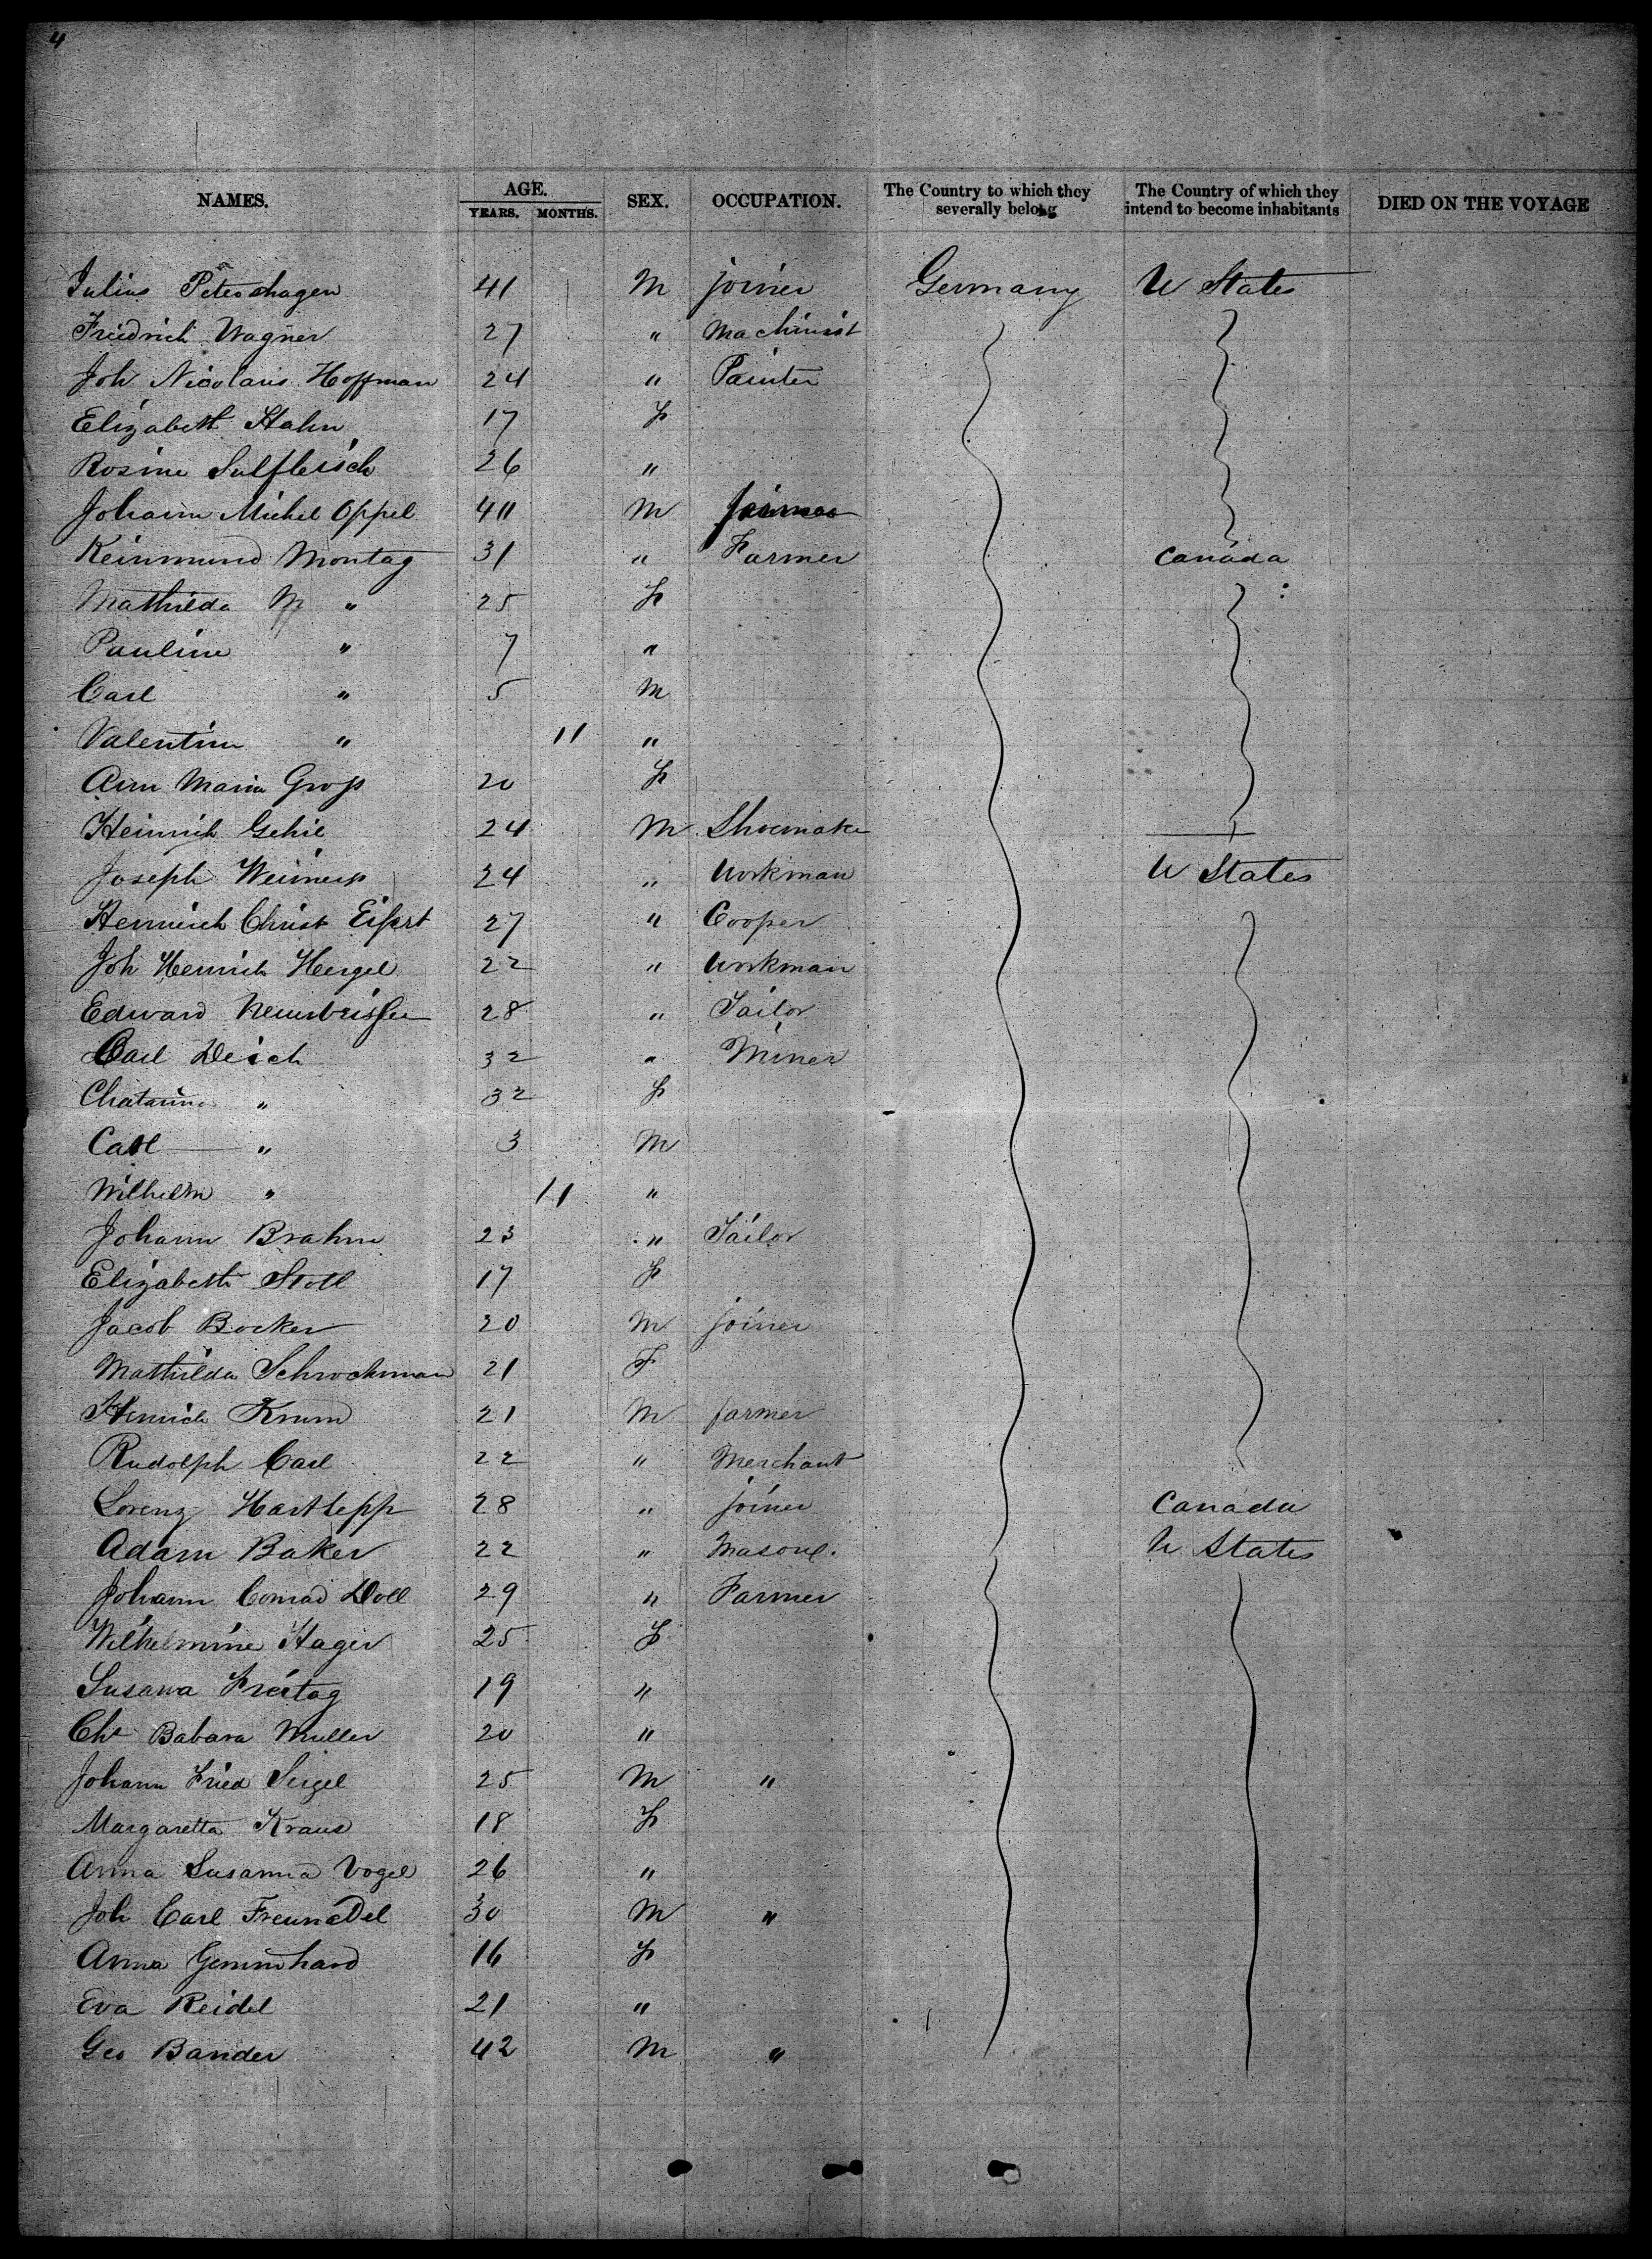 4
NAMES. AGE. YEARS. MONTHS. SEX. OCCUPATION. The Country to which they severally belong The Country of which they intend to become inhabitants DIED ON THE VOYAGE
Julius Petershagen 41 M joiner Germany U States
Friedrich Wagner 27 " Machinist
Joh Nicolaus Hoffman 24 " Painter
Elizabeth Hahn 17 F
Rosine 26 "
Johann Michel Oppel 40 M
Reinmund Montag 31 " Farmer Canada
Mathilda M " 25 F
Pauline " 7 "
Carl " 5 M
Valentim " 11 "
Ann Maria Groß 20 F
Heinrich Gehie 24 M Shoemaker
Joseph 24 " Workman U States
Heinrich Christ Eifert 27 " Cooper
Joh Heinrich Hergel 22 " Workman
Edward 28 " Tailor
Carl Deich 32 " Miner
Chatarina " 32 F
Carl " 3 M
Wilhelm " 11 "
Johann Brahm 23 " Tailor
Elizabeth Stoll 17 F
Jacob Bocker 20 M joiner
Mathilda Schrockman 21 F
Heinrich Krum 21 M farmer
Rudolph Carl 22 " Merchant
Lorenz Hartlepp 28 " joiner Canada
Adam Baker 22 " Masone. U States
Johann Conrad Doll 29 " Farmer
Wilhelmine Hager 25 F
Susana Freitag 19 "
Cht Babara Muller 20 "
Johann Fried Seigel 25 M "
Margaretta Kraus 18 F
Anna Susanna Vogel 26 "
Joh Carl 30 M "
Anna Gemmhard 16 F
Eva Reidel 21 "
Geo Bander 42 M "